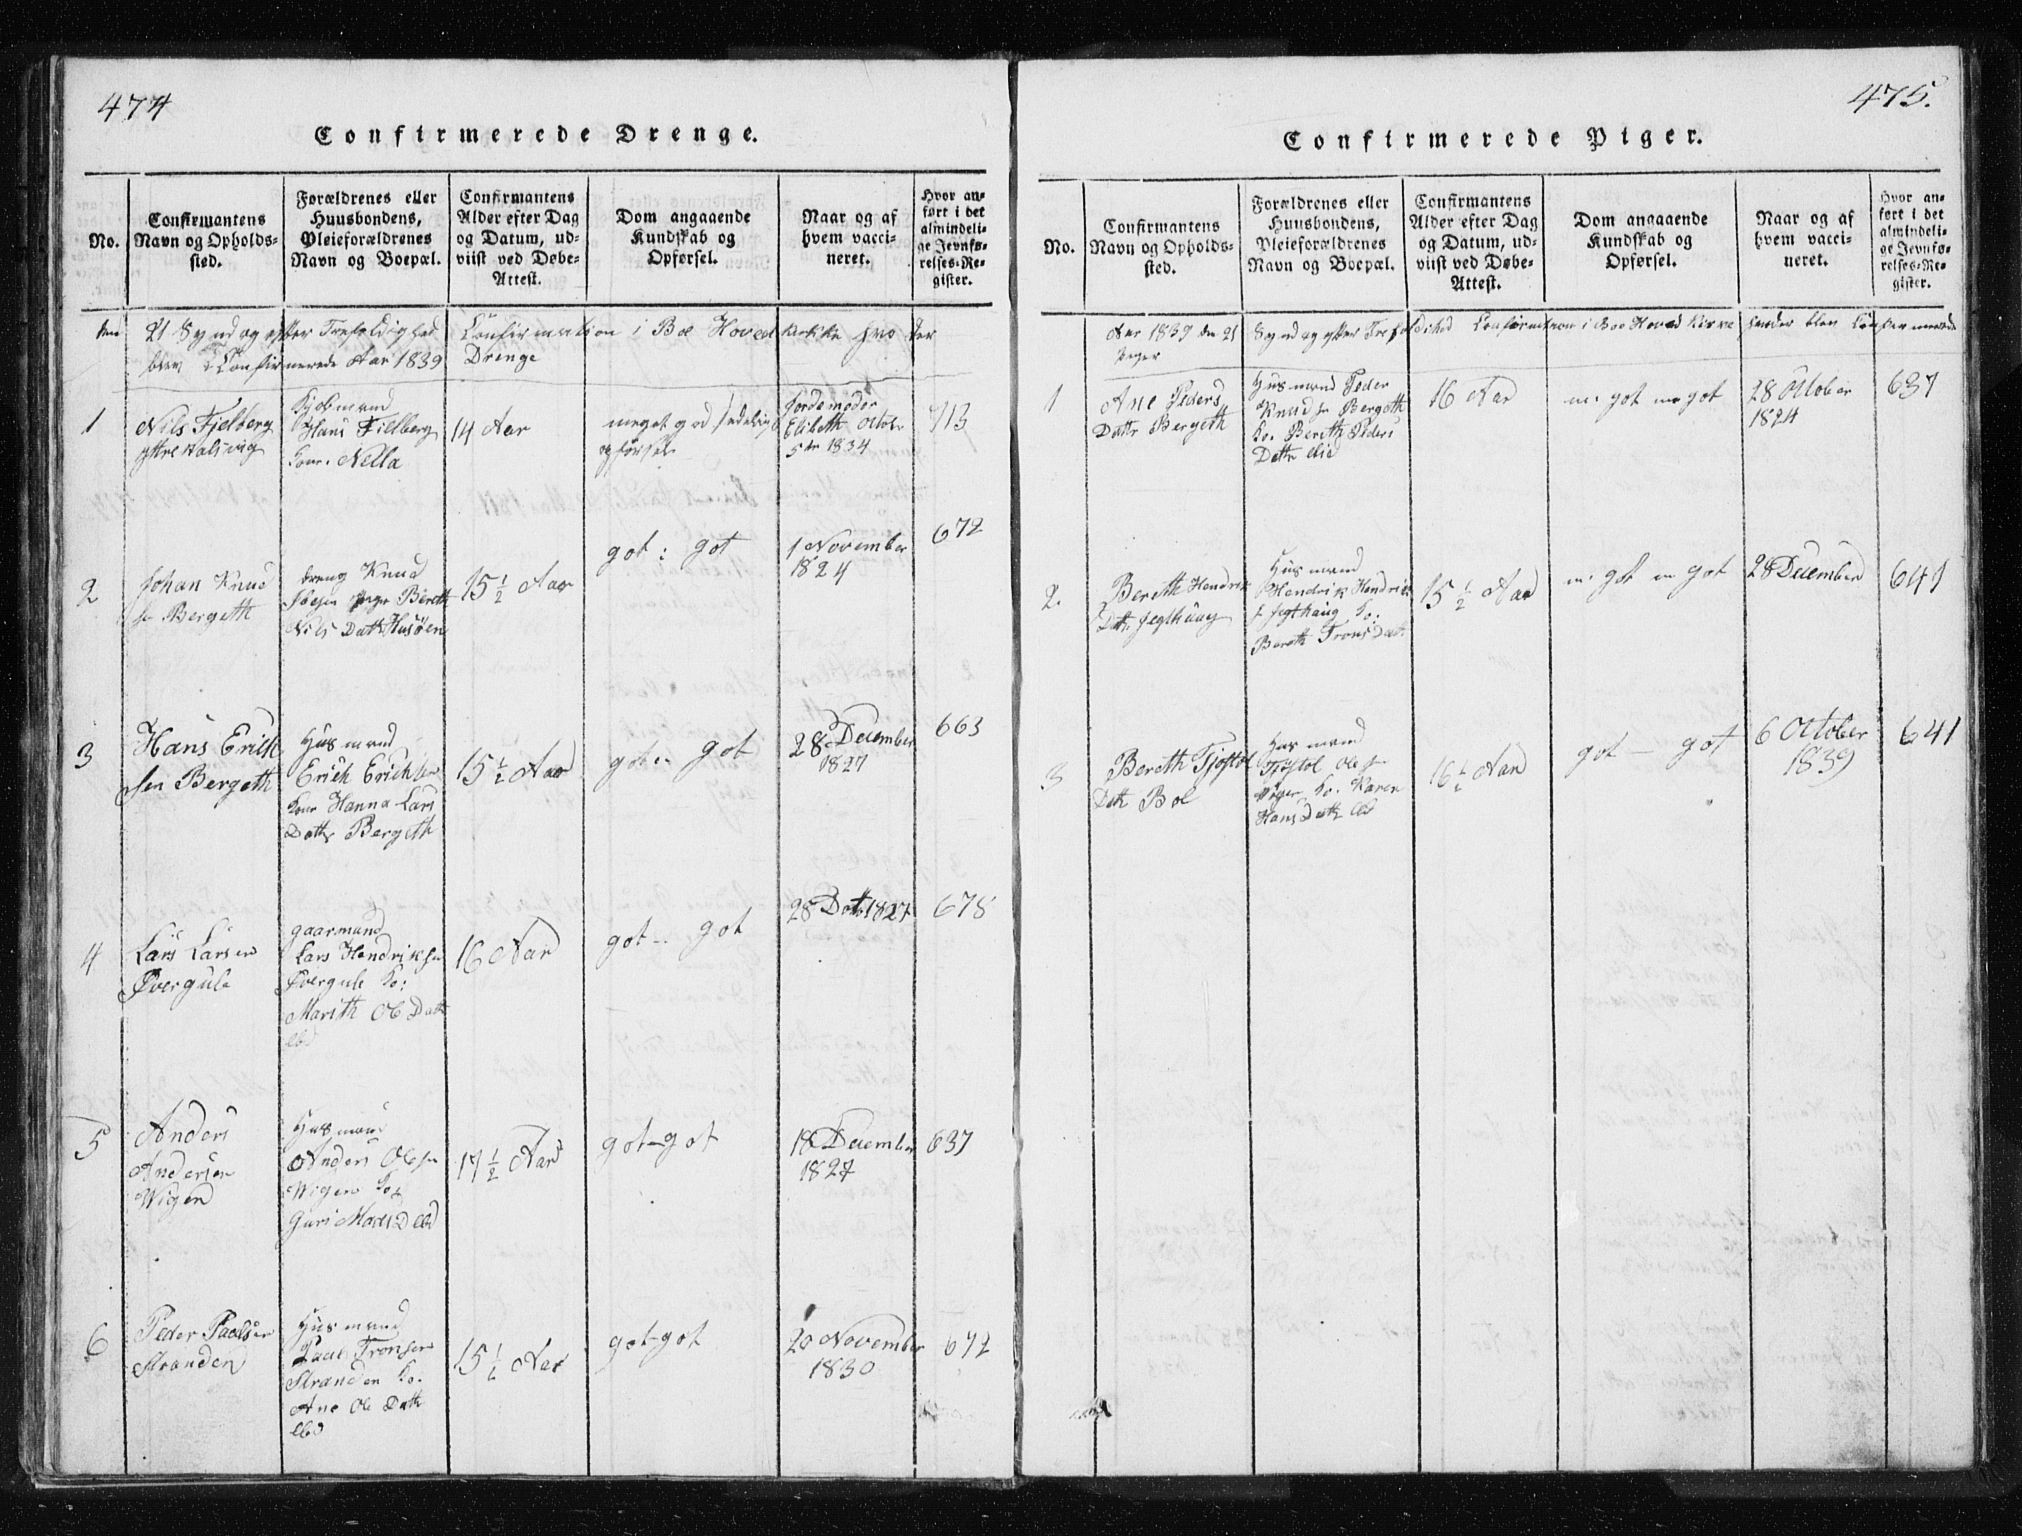 474
Confirmerede Drenge.
No.
Confirmantens
Navn og Opholds-
sted.
Forældrenes eller
Huusbondens,
Pleieforældrenes
Navn og Boepæl.
Confirmantens
Alder efter Dag
og Datum, ud-
viist ved Døbe-
Attest.
Dom angaaende
Kundskab og
Opførsel.
Naar og af
hvem vacci-
neret.
Hvor an-
ført i det
almindeli-
ge Jevnfø-
relses-Re-
gister.
den 21 Syndag efter Trefoldighed Confirmation i Boe Hoved kirke
blev Confirmerede Aar 1839 Drenge
1
Nils Fjelberg
yttre
Kjobmand
Hans Fielberg
Kone. Nella
14 Aar
meget god
opførsel
Jordemoder
Elibeth Octobr
5te 1834
713
2
Johan Knud
sn Bergeth
dreng Knud
Pige Bereth
Nils Datr Husøen
15 1/2 Aar
got: got
1 November
1824
672
3
Hans Erich
sen Bergeth
Husmand
Erich Erichsen
Kone Hanna Lars
Datr Bergeth
15 1/2 Aar
got - got
28 December
1827
663
4
Lars Larsen
Øvergule
gaarmand
Lars Hendriksn
Øvergule Ko:
Marith Ole Datr
ibd
16 Aar
got - got
28 Dotr 1827
678
5
Anders
Andersen
Wigen
Husmand
Anders Olesn
Wigen Ko:
Guri Mads D ibd
17 1/2 Aar
got - got
18 December
1827
637
6
Peder Paalsen
Stranden
Husmand
Paal Tronsen
Stranden Ko.
Ane Ole Datr
ibd
15 1/2 Aar
got - got
20 November
1830
672
475.
Confirmerede Piger.
No.
Confirmantens
Navn og Opholds-
sted.
Forældrenes eller
Huusbondens,
Pleieforældrenes
Navn og Boepæl.
Confirmantens
Alder efter Dag
og Datum, ud-
viist ved Døbe-
Attest.
Dom angaaende
Kundskab og
Opførsel.
Naar og af
hvem vacci-
neret.
Hvor an-
ført i det
almindeli-
ge Jevnfø-
relses-Re-
gister.
Aar 1839 den 21 Syndag efter Trefoldihed Confirmation i Boe Hoved Kirke blev Confirmerede
Piger
1
Ane Peders
Dattr Bergeth
Husmand Peder
Knudsn Bergeth
Ko. Bereth Peders
Datr
16 Aar
m. got m got
28 October
1824
637
2.
Bereth Hendrik
Datr Jegthaug
Husmand
Hendrik Hendrich
s Jegthaug Ko:
Bereth Trons Datr
15 1/2 Aar
m. got m got
28 December
641
3
Bereth Tjøstol
Datr Boe
Husmand
Tjøstol Olesn
Ko. Karen
Hans Datr ibd
16 1/2 Aar
got - got
6 October
1839
641